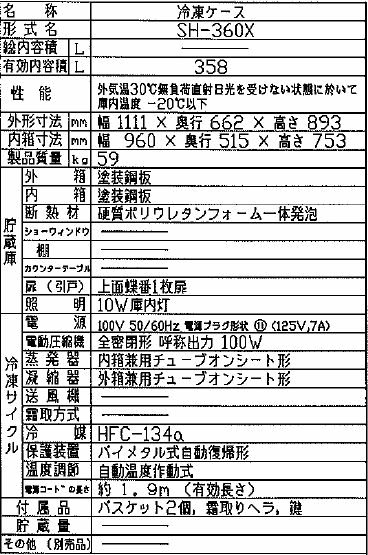 名 称 冷凍ケース
形式名 SH-360X
総内容積 L
有効内容積 L 358
性 能 外気温30℃無負荷直射日光を受けない状態に於いて
庫内温度 -20℃以下
外形寸法 mm 幅 1111 × 奥行 662 × 高さ 893
内箱寸法 mm 幅 960 × 奥行 515 × 高さ 753
製品質量 kg 59
貯蔵庫
外 箱 塗装鋼板
内 箱 塗装鋼板
断熱材 硬質ポリウレタンフォーム一体発泡
ショーウィンドウ
棚
カウンターテーブル
扉(引戸) 上面蝶番1枚扉
照 明 10W庫内灯
冷凍サイクル
電 源 100V 50/60Hz 電源プラグ形状 ⑪ (125V,7A)
電動圧縮機 全密閉形 呼称出力 100W
蒸発器 内箱兼用チューブオンシート形
凝縮器 外箱兼用チューブオンシート形
送風機
霜取方式
冷 媒 HFC-134a
保護装置 バイメタル式自動復帰形
温度調節 自動温度作動式
電源コードの長さ 約 1.9m (有効長さ)
付属品 バスケット2個,霜取りヘラ,鍵
貯蔵量
その他 (別売品)